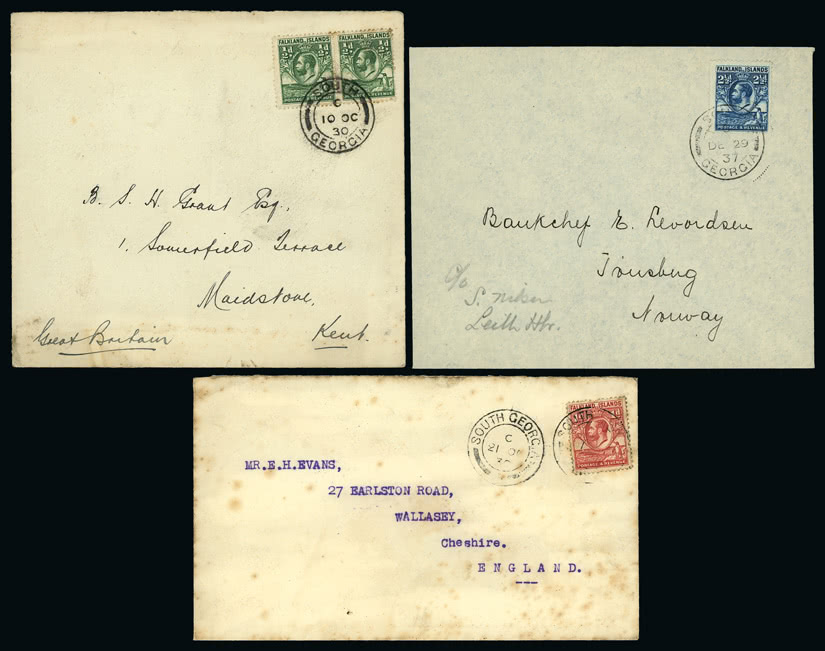 FALKLAND ISLANDS FALKLAND ISLANDS
½d ½d
SOUTH
C
10 OC
30
GEORGIA
B. S. H. Grant Esq.,
1, Somerfield Terrace
Maidstone,
Great Britain
Kent.
FALKLAND ISLANDS
2½d 2½d
POSTAGE & REVENUE
DE 29
37
GEORGIA
Bankchef E. Levordsen
Tönsberg
Norway
c/o
S.
Leith Hbr.
FALKLAND ISLANDS
POSTAGE & REVENUE
SOUTH GEORGIA
C
21 OC
SOUTH
MR.E.H.EVANS,
27 EARLSTON ROAD,
WALLASEY,
Cheshire.
ENGLAND.